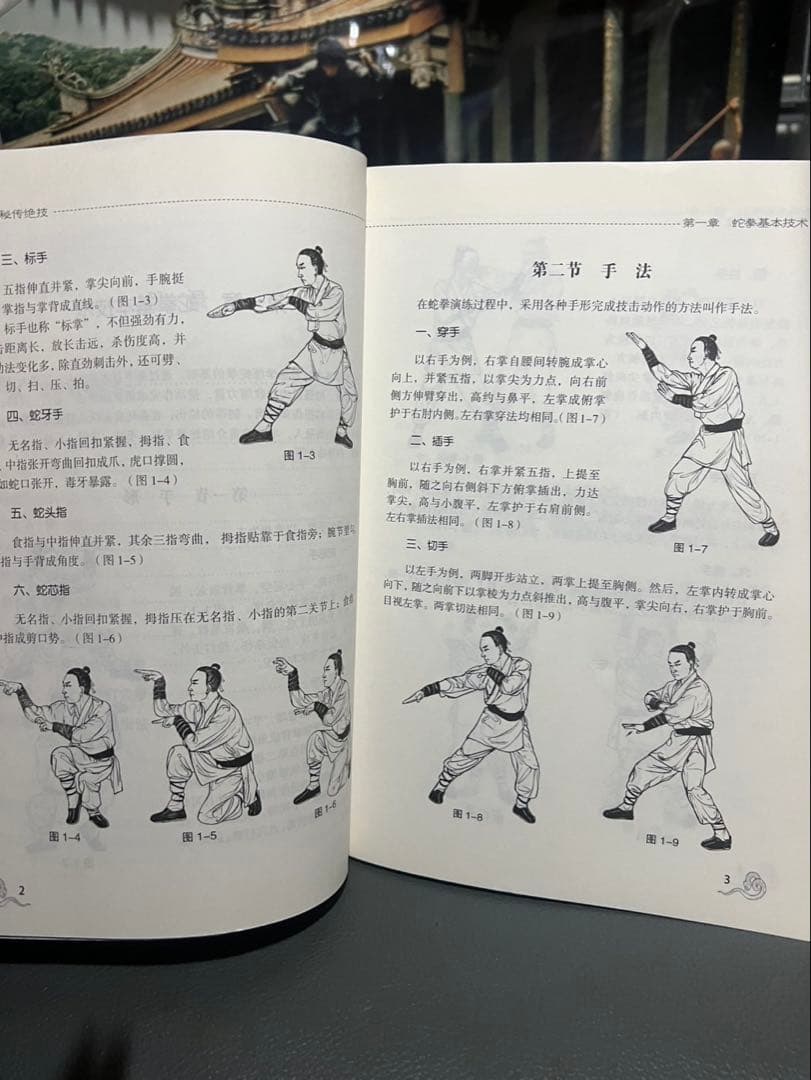 秘传绝技
三、标手
五指伸直并紧，掌尖向前，手腕挺
掌指与掌背成直线。（图 1-3）
标手也称“标掌”，不但强劲有力，
击距离长，放长击远，杀伤度高，并
功法变化多，除直劲刺击外，还可劈、
切、扫、压、拍。
图 1-3
四、蛇牙手
无名指、小指回扣紧握，拇指、食
中指张开弯曲回扣成爪，虎口撑圆，
如蛇口张开，毒牙暴露。（图 1-4）
五、蛇头指
食指与中指伸直并紧，其余三指弯曲，拇指贴靠于食指旁；腕节里勾，
指与手背成角度。（图 1-5）
六、蛇芯指
无名指、小指回扣紧握，拇指压在无名指、小指的第二关节上；食指
中指成剪口势。（图 1-6）
图 1-4
图 1-5
图 1-6
2
第一章 蛇拳基本技术
第二节 手 法
在蛇拳演练过程中，采用各种手形完成技击动作的方法叫作手法。
一、穿手
以右手为例，右掌自腰间转腕成掌心
向上，并紧五指，以掌尖为力点，向右前
侧方伸臂穿出，高约与鼻平，左掌成俯掌
护于右肘内侧。左右掌穿法均相同。（图 1-7）
图 1-7
二、插手
以右手为例，右掌并紧五指，上提至
胸前，随之向右侧斜下方俯掌插出，力达
掌尖，高与小腹平，左掌护于右肩前侧。
左右掌插法相同。（图 1-8）
三、切手
以左手为例，两脚开步站立，两掌上提至胸侧。然后，左掌内转成掌心
向下，随之向前下以掌棱为力点斜推出，高与腹平，掌尖向右，右掌护于胸前。
目视左掌。两掌切法相同。（图 1-9）
图 1-8
图 1-9
3